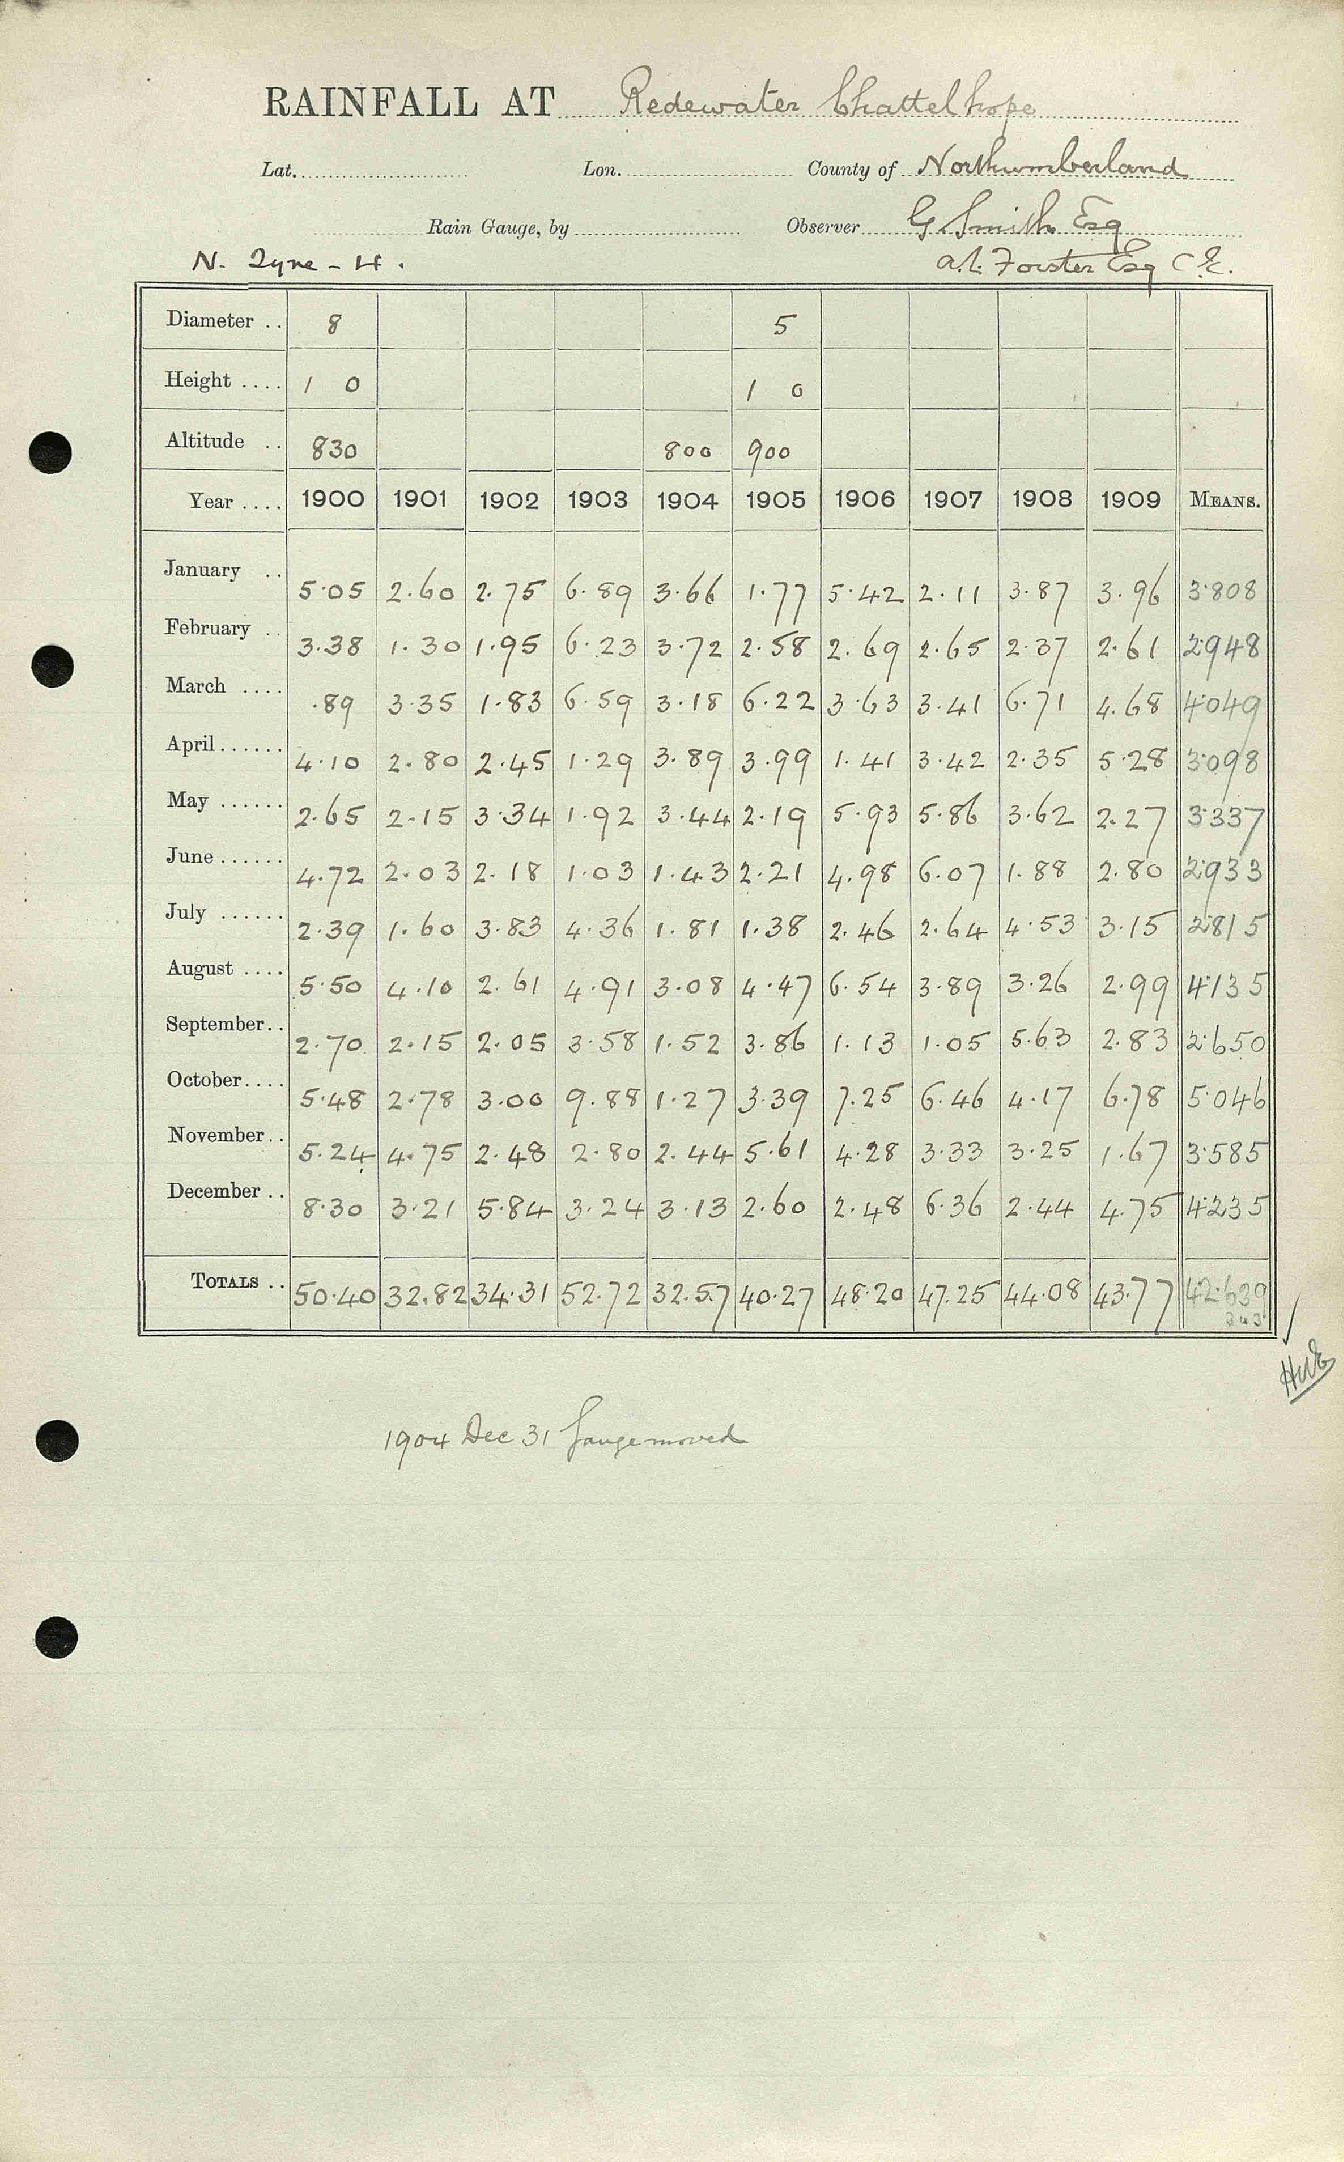 RAINFALL AT Redewater Chattelhope
Lat. Lon. County of Northumberland
Rain Gauge, by Observer G Smith Esq
N. Tyne - 4. A.C. Forster Esq C.E.
Diameter .. 8 5
Height .... 1 0 1 0
Altitude .. 830 800 900
Year .... 1900 1901 1902 1903 1904 1905 1906 1907 1908 1909 MEANS.
January .. 5.05 2.60 2.75 6.89 3.66 1.77 5.42 2.11 3.87 3.96 3.808
February .. 3.38 1.30 1.95 6.23 3.72 2.58 2.69 2.65 2.37 2.61 2.948
March .... .89 3.35 1.83 6.59 3.18 6.22 3.63 3.41 6.71 4.68 4.049
April...... 4.10 2.80 2.45 1.29 3.89 3.99 1.41 3.42 2.35 5.28 3.098
May ...... 2.65 2.15 3.34 1.92 3.44 2.19 5.93 5.86 3.62 2.27 3.337
June ...... 4.72 2.03 2.18 1.03 1.43 2.21 4.98 6.07 1.88 2.80 2.933
July ...... 2.39 1.60 3.83 4.36 1.81 1.38 2.46 2.64 4.53 3.15 2.815
August .... 5.50 4.10 2.61 4.91 3.08 4.47 6.54 3.89 3.26 2.99 4.135
September.. 2.70 2.15 2.05 3.58 1.52 3.86 1.13 1.05 5.63 2.83 2.650
October.... 5.48 2.78 3.00 9.88 1.27 3.39 7.25 6.46 4.17 6.78 5.046
November.. 5.24 4.75 2.48 2.80 2.44 5.61 4.28 3.33 3.25 1.67 3.585
December .. 8.30 3.21 5.84 3.24 3.13 2.60 2.48 6.36 2.44 4.75 4.235
TOTALS .. 50.40 32.82 34.31 52.72 32.57 40.27 48.20 47.25 44.08 43.77 42.639
1904 Dec 31 Gauge moved